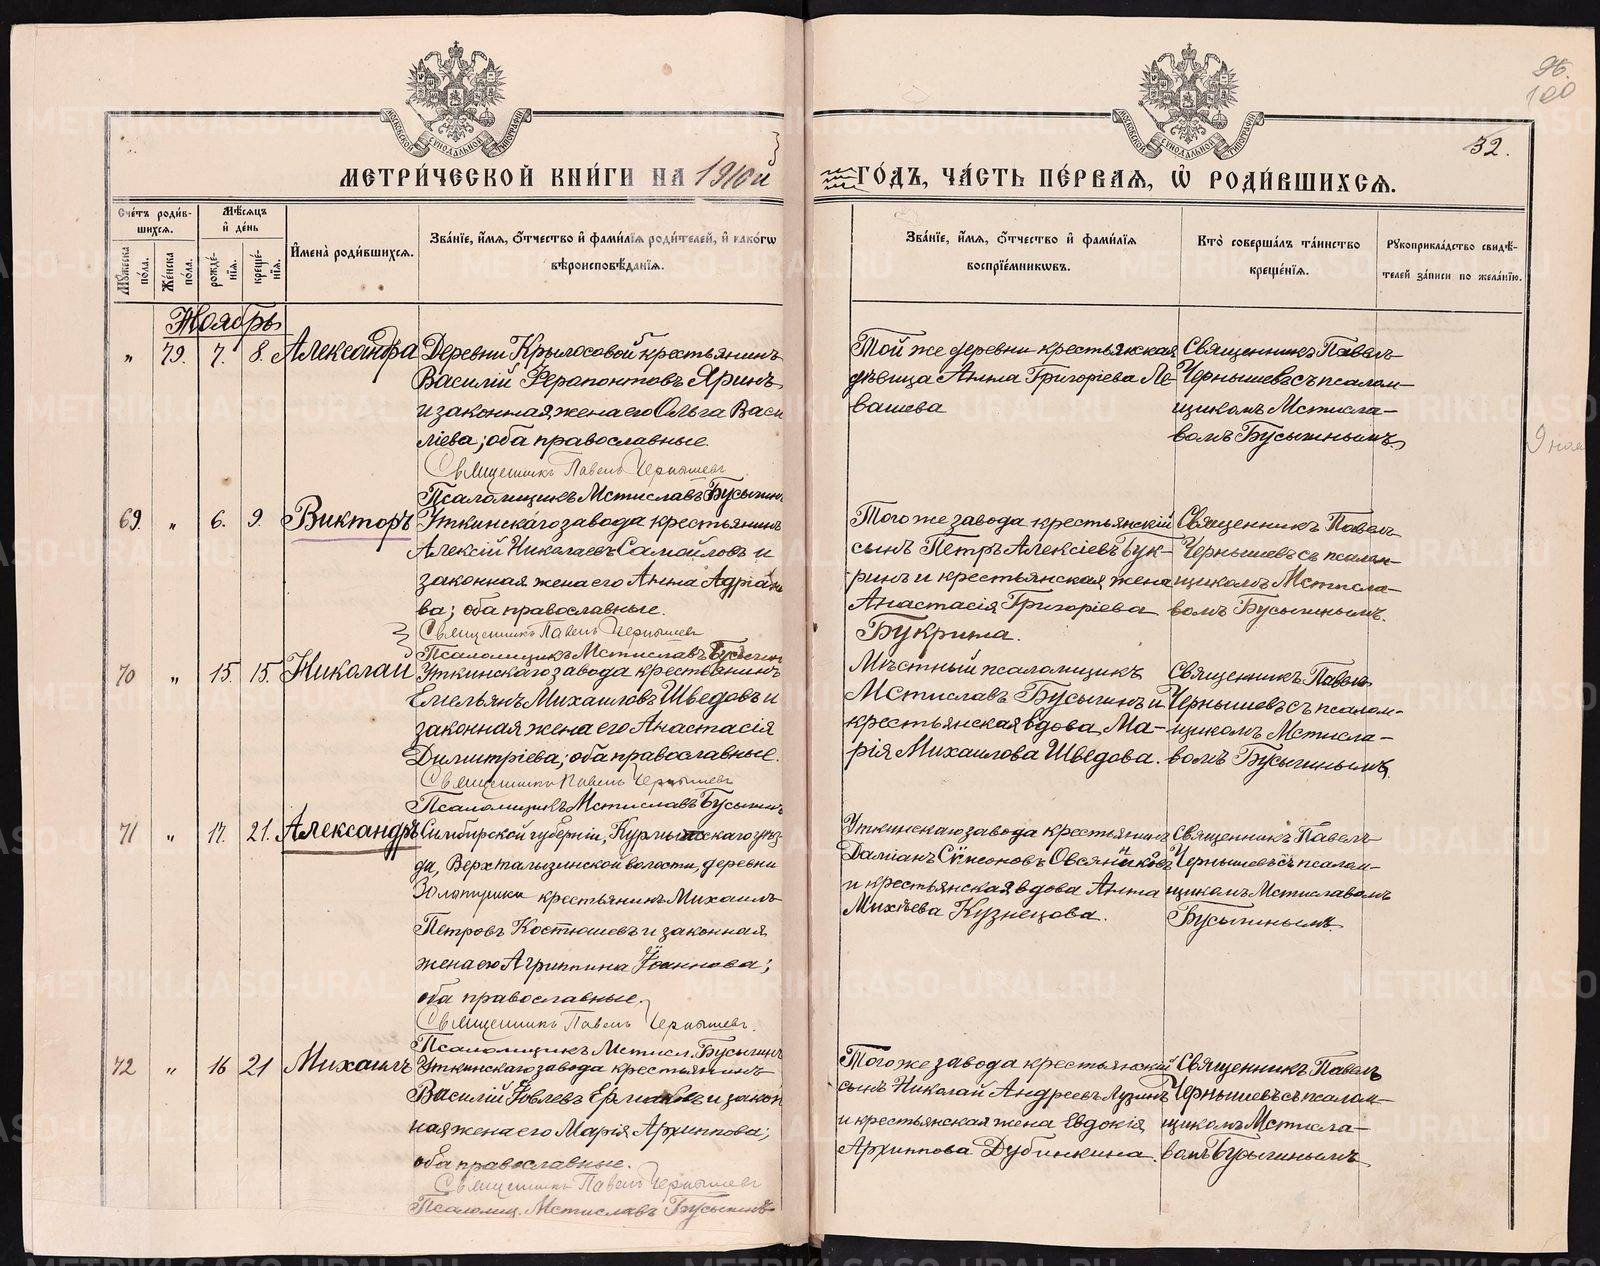 96.
100
32.
МОСКОВСКОЙ СѴНОДАЛЬНОЙ ТИПОГРАФІИ
МОСКОВСКОЙ СѴНОДАЛЬНОЙ ТИПОГРАФІИ
МЕТРИ́ЧЕСКОЙ КНИ́ГИ НА 1910й
ГО́ДЪ, ЧА́СТЬ ПЕ́РВАЯ, Ѡ РОДИ́ВШИХСЯ.
Сче́тъ роди́в-
шихся.
Му́жеска
по́ла.
Же́нска
по́ла.
Мѣ́сяцъ
и де́нь
рожде́-
нїя.
креще́-
нїя.
Имена̀ роди́вшихся.
Зва́нїе, и́мя, о́тчество и фами́лїя роди́телей, и како́гѡ
вѣроисповѣ́данїя.
Зва́нїе, и́мя, о́тчество и фами́лїя
воспрїе́мникѡвъ.
Кто̀ соверша́лъ та́инство
креще́нїя.
Рукоприкла́дство свидѣ́-
телей за́писи по жела́нїю.
Ноябрь
„ 79. 7. 8. Александра
Деревни Крылосовой крестьянинъ
Василій Ферапонтовъ Яринъ
и законная жена его Ольга Васи
ліева; оба православные.
Священникъ Павелъ Чернышевъ
Псаломщикъ Мстиславъ Бусыгинъ
Той же деревни крестьянская
дѣвица Анна Григоріева Ле-
вашева
Священникъ Павелъ
Чернышевъ съ псалом-
щикомъ Мстисла-
вомъ Бусыгинымъ.
9 ноя
69. „ 6. 9. Викторъ
Уткинскаго завода крестьянинъ
Алексій Николаевъ Самойловъ и
законная жена его Анна Адріано
ва; оба православные.
Священникъ Павелъ Чернышевъ
Псаломщикъ Мстиславъ Бусыгинъ
Того же завода крестьянскій
сынъ Петръ Алексіевъ Бук-
ринъ и крестьянская жена
Анастасія Григоріева
Букрина.
Священникъ Павелъ
Чернышевъ съ псалом-
щикомъ Мстисла-
вомъ Бусыгинымъ.
70 „ 15. 15. Николай
Уткинскаго завода крестьянинъ
Емельянъ Михаиловъ Шведовъ и
законная жена его Анастасія
Димитріева; оба православные.
Священникъ Павелъ Чернышевъ
Псаломщикъ Мстиславъ Бусыгинъ
Мѣстный псаломщикъ
Мстиславъ Бусыгинъ и
крестьянская вдова Ма-
рія Михаилова Шведова.
Священникъ Павелъ
Чернышевъ съ псалом-
щикомъ Мстисла-
вомъ Бусыгинымъ
71 „ 17. 21. Александръ
Симбирской губерніи, Курмышскаго уѣз-
да, Верхталызинской волости, деревни
крестьянинъ Михаилъ
Петровъ Костюшевъ и законная
жена его Агриппина Іоаннова;
оба православные.
Священникъ Павелъ Чернышевъ.
Псаломщикъ Мстисл. Бусыгинъ
Уткинскаго завода крестьянинъ
Даміанъ Овсянниковъ
и крестьянская вдова Анна
Михѣева Кузнецова.
Священникъ Павелъ
Чернышевъ съ псалом-
щикомъ Мстиславомъ
Бусыгинымъ.
72 „ 16 21 Михаилъ
Уткинскаго завода крестьянинъ
Василій Іовлевъ Ермаковъ и закон
ная жена его Марія Архиппова;
оба православные.
Священникъ Павелъ Чернышевъ
Псаломщ. Мстиславъ Бусыгинъ
Того же завода крестьянскій
сынъ Николай Андреевъ Лузинъ
и крестьянская жена Евдокія
Архиппова Дубинкина.
Священникъ Павелъ
Чернышевъ съ псалом-
щикомъ Мстисла-
вомъ Бусыгинымъ
METRIKI.GASO-URAL.RU